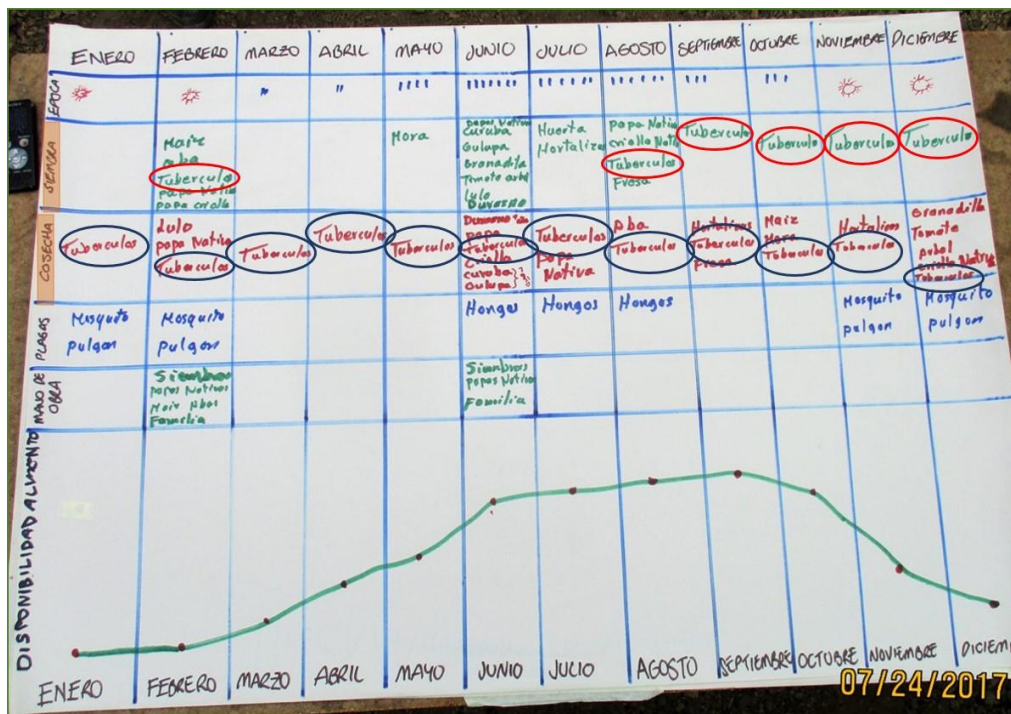 ENERO FEBRERO MARZO ABRIL MAYO JUNIO JULIO AGOSTO SEPTIEMBRE OCTUBRE NOVIEMBRE DICIEMBRE
EPOCA
SIEMBRA
Maiz
Aba
Tuberculos
papa Nativa
papa criolla
Mora
papas Nativas
Curuba
Gulupa
Granadilla
Tomate arbol
Lulo
Durazno
Huerta
Hortaliza
papa Nativa
criolla
Tuberculos
Fresa
Tuberculo
Tuberculo
Tuberculo
Tuberculo
COSECHA
Tuberculos
Lulo
papa Nativa
Tuberculos
Tuberculos
Tuberculos
Tuberculos
Durazno
papa
Tuberculos
Criolla
Curuba
Gulupa
Tuberculos
papa
Nativa
Aba
Tuberculos
Hortalizas
Tuberculos
Fresa
Maiz
Mora
Tuberculos
Hortalizas
Tuberculos
Granadilla
Tomate
Arbol
criolla Nativa
Tuberculos
PLAGAS
Mosquito
pulgon
Mosquito
pulgon
Hongos
Hongos
Hongos
Mosquito
pulgon
Mosquito
pulgon
MANO DE
OBRA
Siembras
papas Nativas
Maiz Abas
Familia
Siembras
papas Nativas
Familia
DISPONIBILIDAD ALIMENTO
ENERO FEBRERO MARZO ABRIL MAYO JUNIO JULIO AGOSTO SEPTIEMBRE OCTUBRE NOVIEMBRE DICIEM
07/24/2017